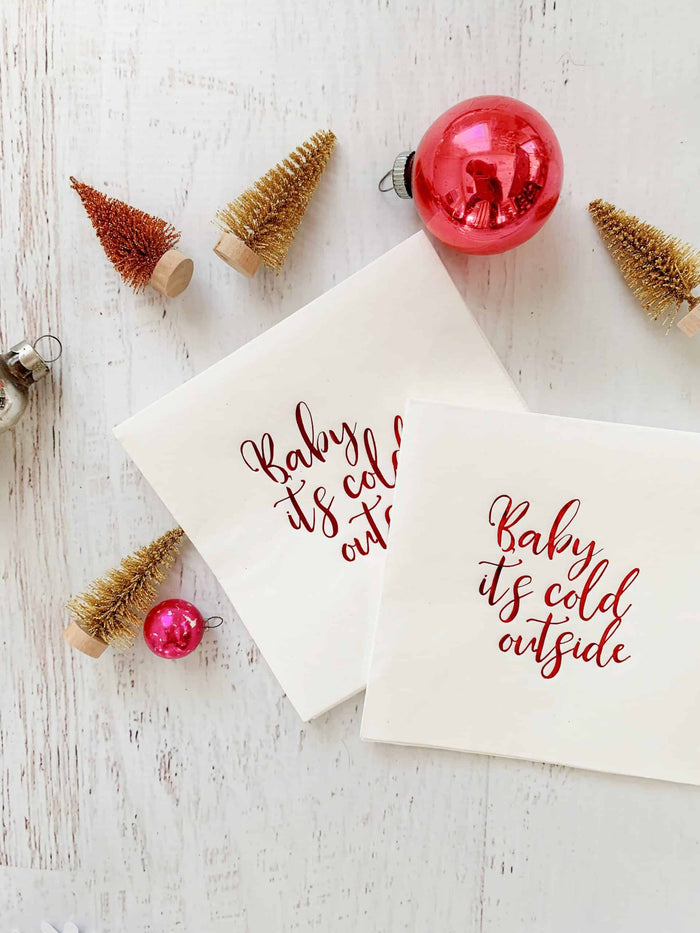 Baby
it's cold
outside
Baby
it's cold
outside